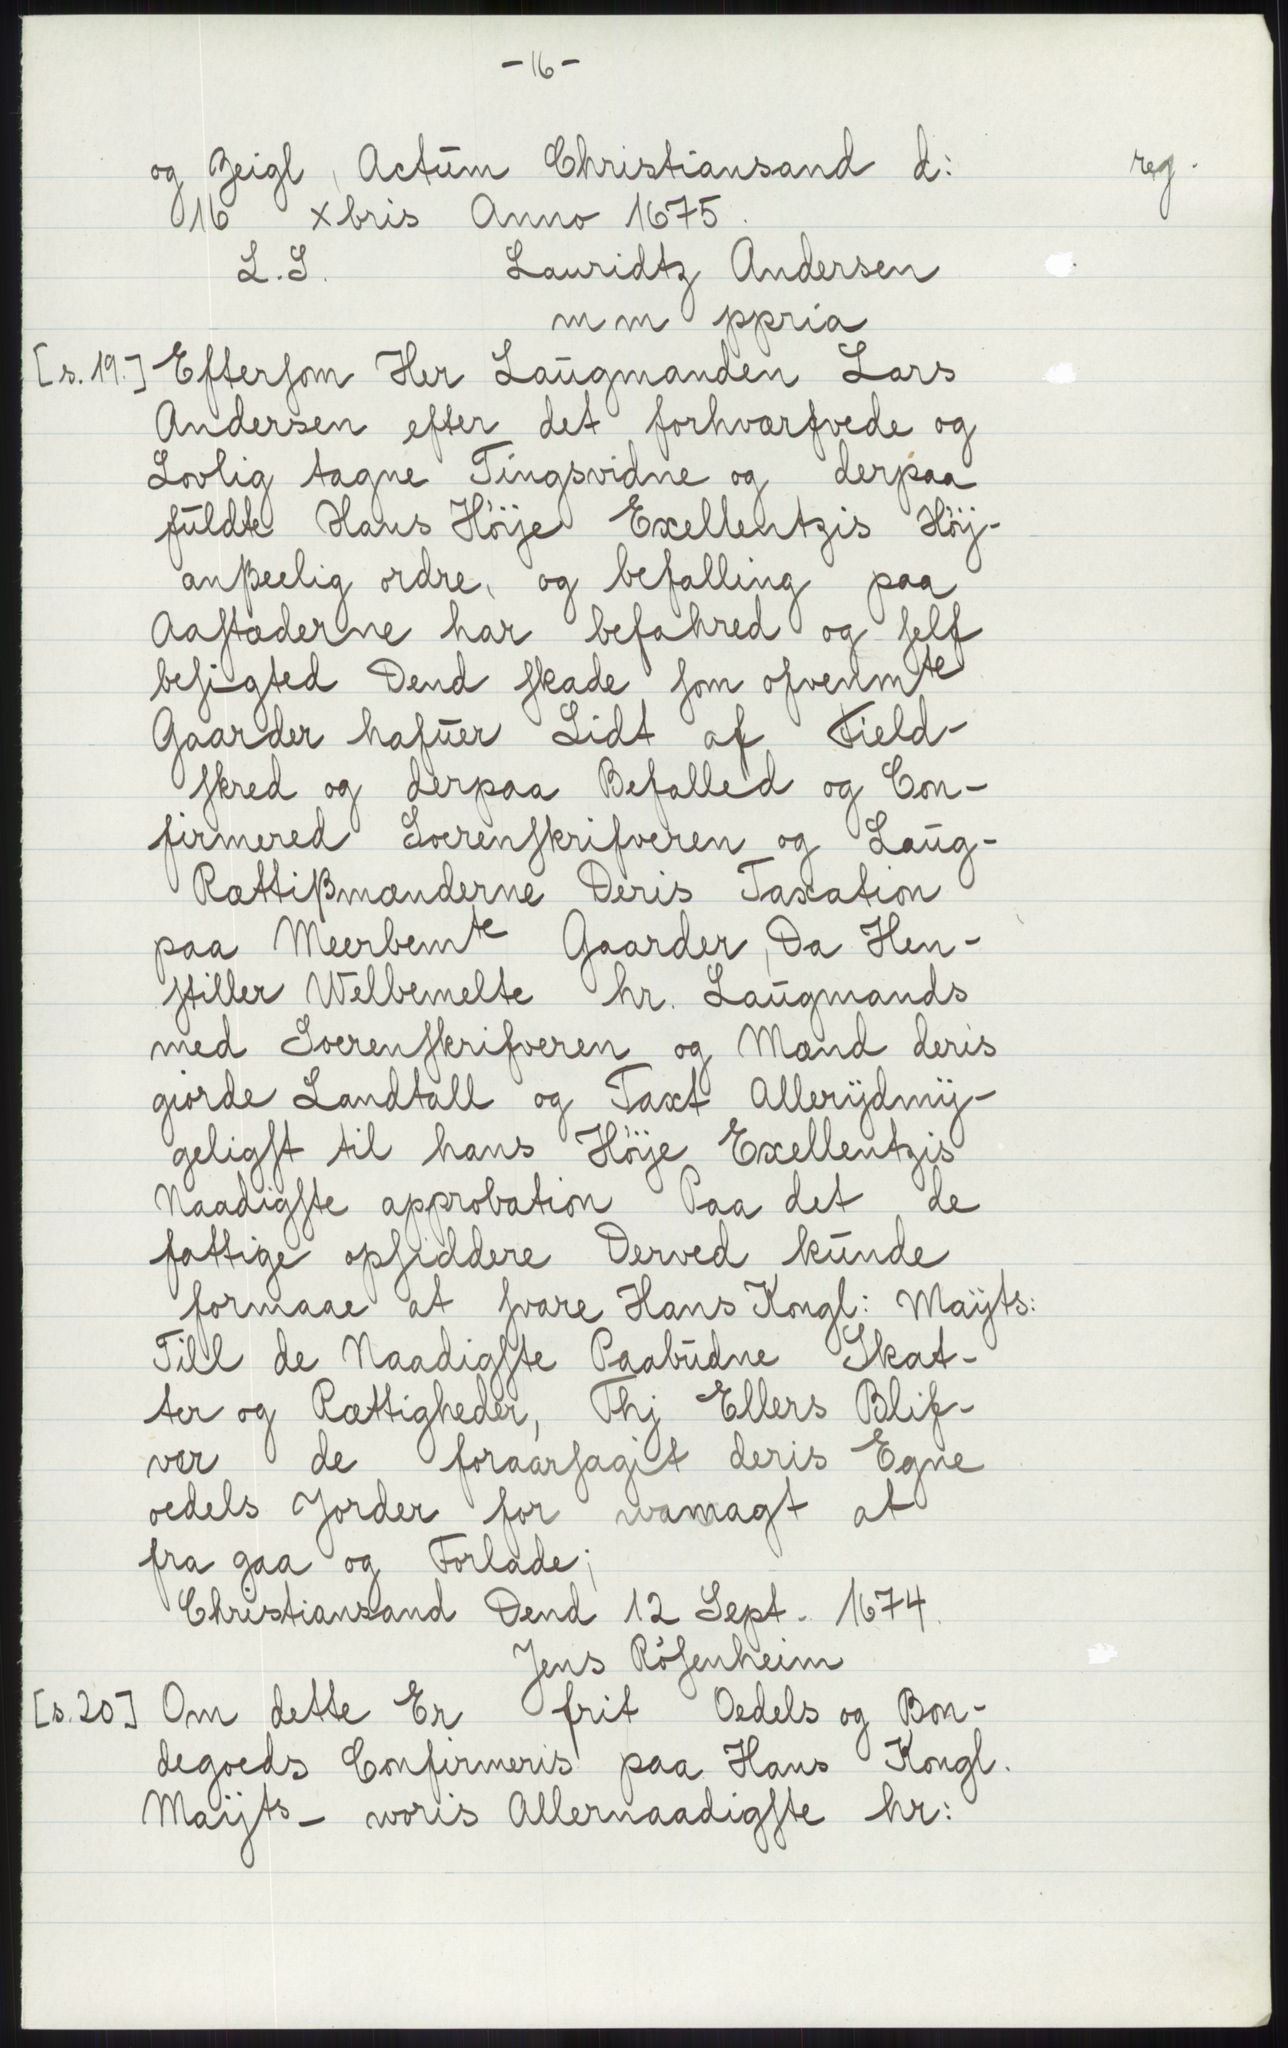 -16-
og Zeigl, Actum Christiansand d: reg.
16 xbris Anno 1675.
L.S. Lauridtz Andersen
mm ppria
[s.19.] Eftersom Her Laugmanden Lars
Andersen efter det forhværfvede og
Lovlig tagne Tingsvidne og derpaa
fuldte Hans Høÿe Exellentzis Høÿ-
anßeelig ordre, og befalling paa
Aastæderne har befahred og self
besigted Dend skade som ofvenmte
Gaarder hafuer Lidt af Field-
skred og derpaa Befalled og Con-
firmered Sorenskrifveren og Laug-
Rættißmænderne Deris Taxation
paa Meerbemte Gaarder, Da Hen-
stiller Welbemelte hr. Laugmands
med Sorenskrifveren og Mænd deris
giorde Landtall og Taxt Allerÿdmÿ-
geligst til hans Høÿe Exellentzis
Naadigste approbation Paa det de
fattige opsiddere Derved kunde
formaae at svare Hans Kongl: Maÿts:
Till de Naadigste Paabudne Skat-
ter og Rættigheder, Thj Ellers Blif-
ver de foraarsagit deris Egne
oedels Jorder for wamagt at
fra gaa og Forlade;
Christiansand Dend 12 Sept. 1674.
Jens Rósenheim
[s.20] Om dette Er frit Oedels og Bon-
degoeds Confirmeris paa Hans Kongl.
Maÿts- woris Allernaadigste hr: